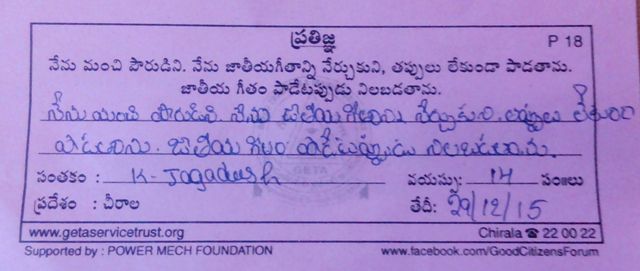 ప్రతిజ్ఞ
P 18
నేను మంచి పౌరుడిని. నేను జాతీయగీతాన్ని నేర్చుకుని, తప్పులు లేకుండా పాడతాను.
జాతీయ గీతం పాడేటప్పుడు నిలబడతాను.
నేను మంచి పౌరుడిని నేను జాతీయ గీతాను నేర్చుకుని. తప్పులు లేకుండా
పాడతాను. జాతీయ గీతం పాడేటప్పుడు నిలబడతాను.
సంతకం : K-Jagadeesh వయస్సు: 14 సం॥లు
ప్రదేశం : చీరాల తేదీ: 29/12/15
www.getaservicetrust.org Chirala ☎ 22 00 22
Supported by : POWER MECH FOUNDATION www.facebook.com/GoodCitizensForum